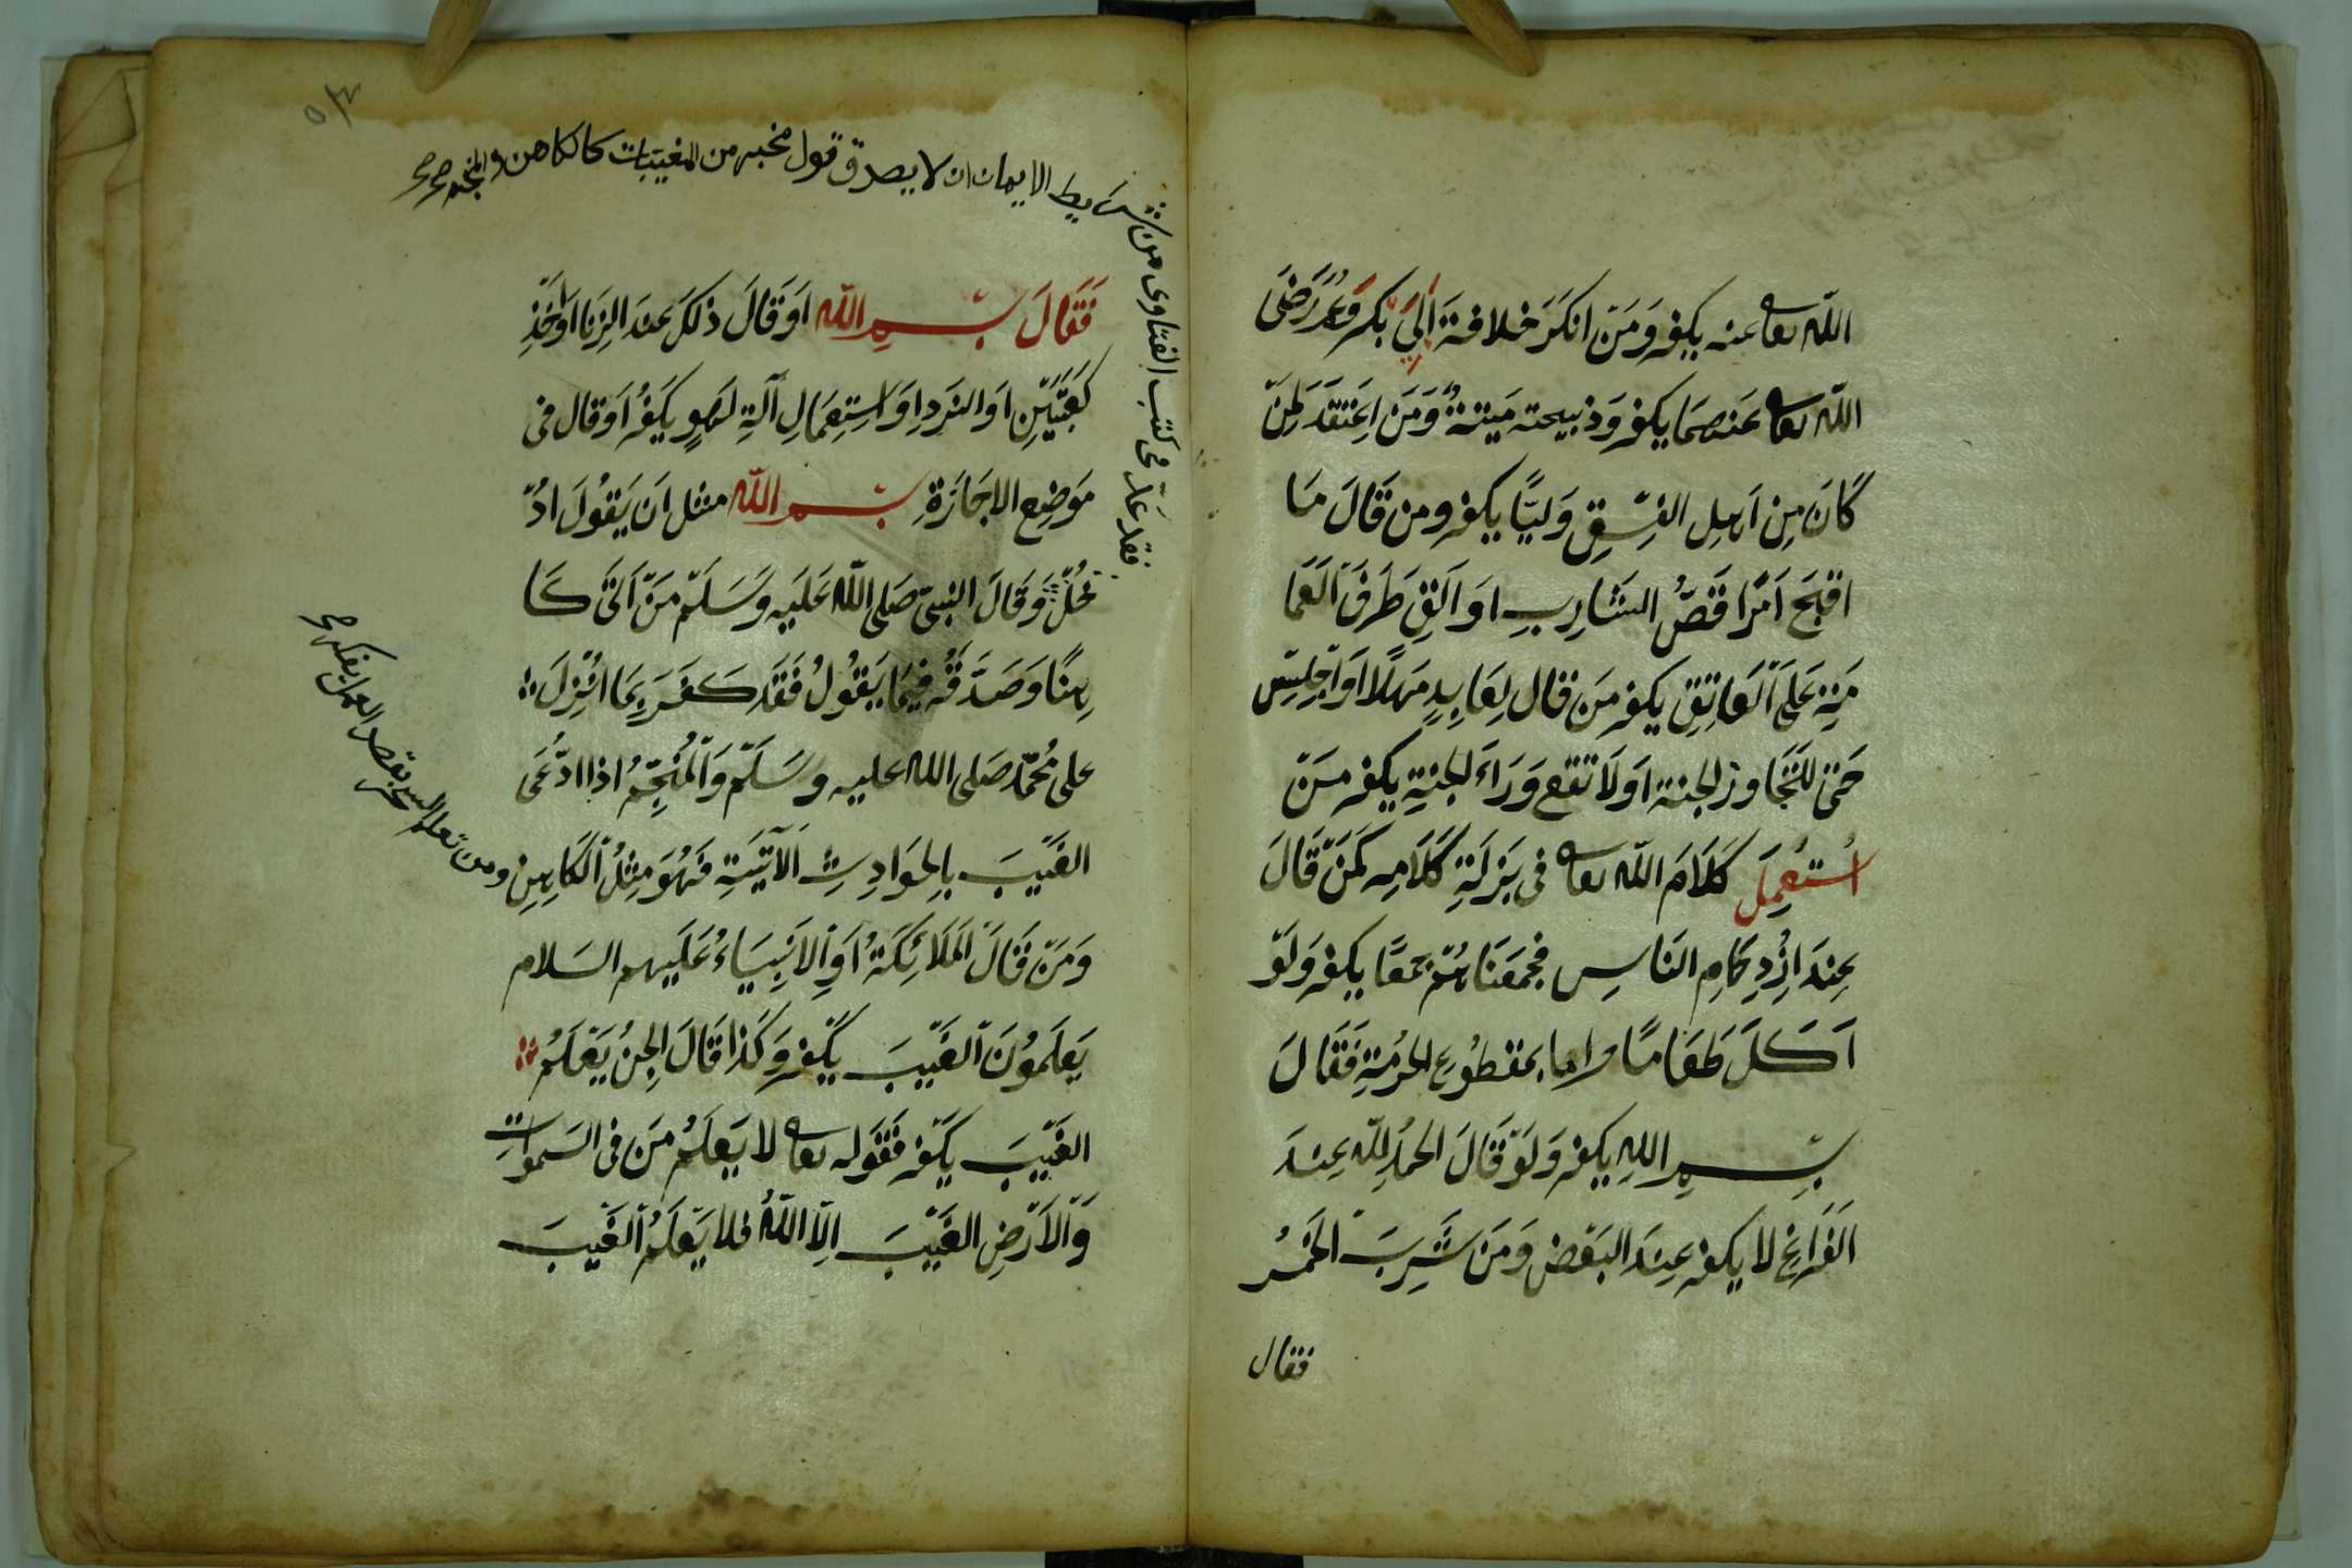 الله تعا عنه يكفر وَمَنْ انكَرَ خلافةَ اَبِى بكر وَعُمَرَ رَضَىَ
الله تعا عَنهمَا يكفر وَذبيحته مَيتةٌ وَمَن اِعْتَقَدَ لِمَنْ
كَانَ مِن اَهِل الفِسْقِ وَلِيًّا يكفر ومن قَالَ مَا
اقبَحَ اَمْرًا قَصَّ الشَارِبِ اوَ اَلقِ طَرَفَ اَلعَمَا
مَةِ عَلىَ اَلعَاتقِ يكفر مَن قال لِعَابِدٍ مَهلًا اَوْ اَجْلِسْ
حَتى للتَجَاوز الجنة اوَ لَا تقع وَرَاءَ الجنةِ يكفر مَنْ
اُستُعمِلَ كَلَامَ الله تعا فى بَزلَةِ كَلَامِه كَمَنْ قَالَ
عِندَ اِزْدِحَامِ النَاسِ فجمَعنَاهُمْ جمعًا يكفر وَلَوْ
اَكَلَ طَعَامًا حراما بمقطُوعِ الحرمَةِ فَقَالَ
بِسْمِ اللهِ يكفر وَلَوْ قَالَ الحمدُ لِلّه عِندَ
اَلفَرَاغِ لا يكفر عِندَ البَعْضِ وَمَنْ شَرِبَ الخَمْرُ
فقال
من شرَايط الايمان ان لا يصدق قول مخبر من المغيبات كالكاهن والمنجم صح صح
فقد عدّ فى كتب الفتاوى
فَقَالَ بِسْمِ الله اوْ قَالَ ذلكَ عندَ الزِنَا اوْ اَخْذِ
كَعْبَتَيْنِ اَوِ النرَدِ اوَ اسْتِعمَالِ آلةِ لَهوٍ يَكفرُ اَوْ قال فى
مَوْضِعِ الاجَازَةِ بِسْمِ الله مثل اَن يَقُولَ اُدْ
خُلْ وَقَالَ النبىّ صَلى الله عَلَيهِ وَسَلَّم مَنْ اَتَى كَا
هِنًا وَصَدَّقهُ فِيمَا يَقُولُ فَقَد كَفَرَ بِمَا اُنْزِلَ
على مُحمَّد صَلى الله عليه وسَلَّم وَاَلمُنَجِّمُ اذا ادَّعَى
الغَيْبَ بالحوَادِثِ اَلآتيَةِ فَهُوَ مِثلُ اَلكَاهِنِ
ومن تعلم السحر بقصد العمل يكفر صح
وَمَنْ قَالَ اَلمَلَائكَةُ اَوِ الاَنبِيَاءُ عَلَيهم السَلام
يَعلَمُونَ اَلغَيْبَ يكْفر وَكَذا قَالَ الجِنُ يَعْلَمُ
الغَيْبَ يكْفر فَقَوله تعا لا يَعلَمُ مَن فى السَموَاتِ
وَالاَرْضِ الغَيْبَ اِلّا اللهُ فلا يَعلَمُ اَلغَيبَ